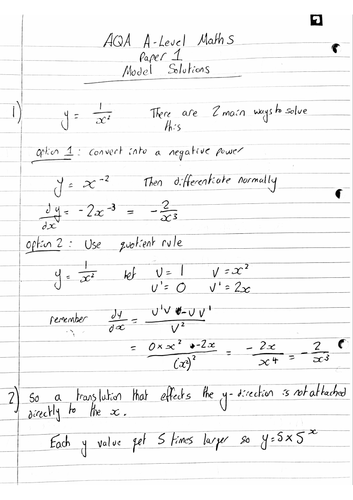 AQA A-Level Maths
Paper 1
Model Solutions
1) y = 1/x² There are 2 main ways to solve
this
Option 1: convert into a negative power
y = x⁻² Then differentiate normally
dy/dx = -2x⁻³ = -2/x³
Option 2: Use quotient rule
y = 1/x² let U = 1 V = x²
U' = 0 V' = 2x
remember dy/dx = U'V - UV'/V²
= 0 × x² - 2x/(x²)² = -2x/x⁴ = -2/x³
2) So a translution that effects the y-direction is not attached
directly to the x.
Each y value get 5 times larger so y = 5 × 5ˣ